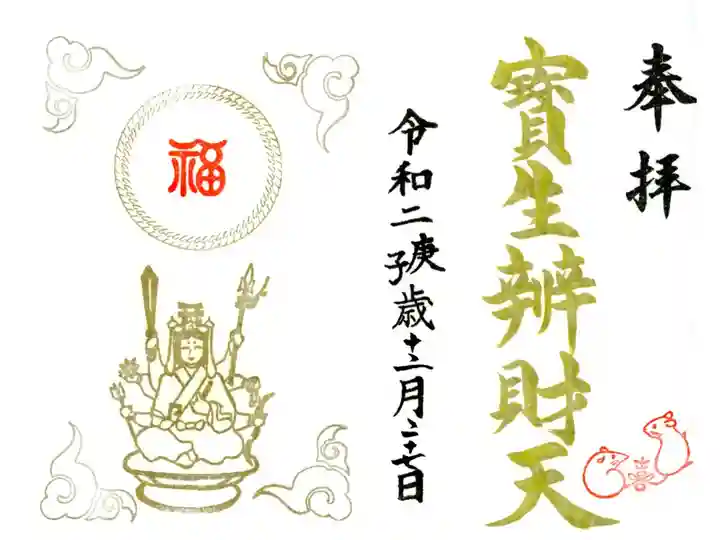 奉拝
寶生辨財天
令和二庚子歳十二月二十七日
福